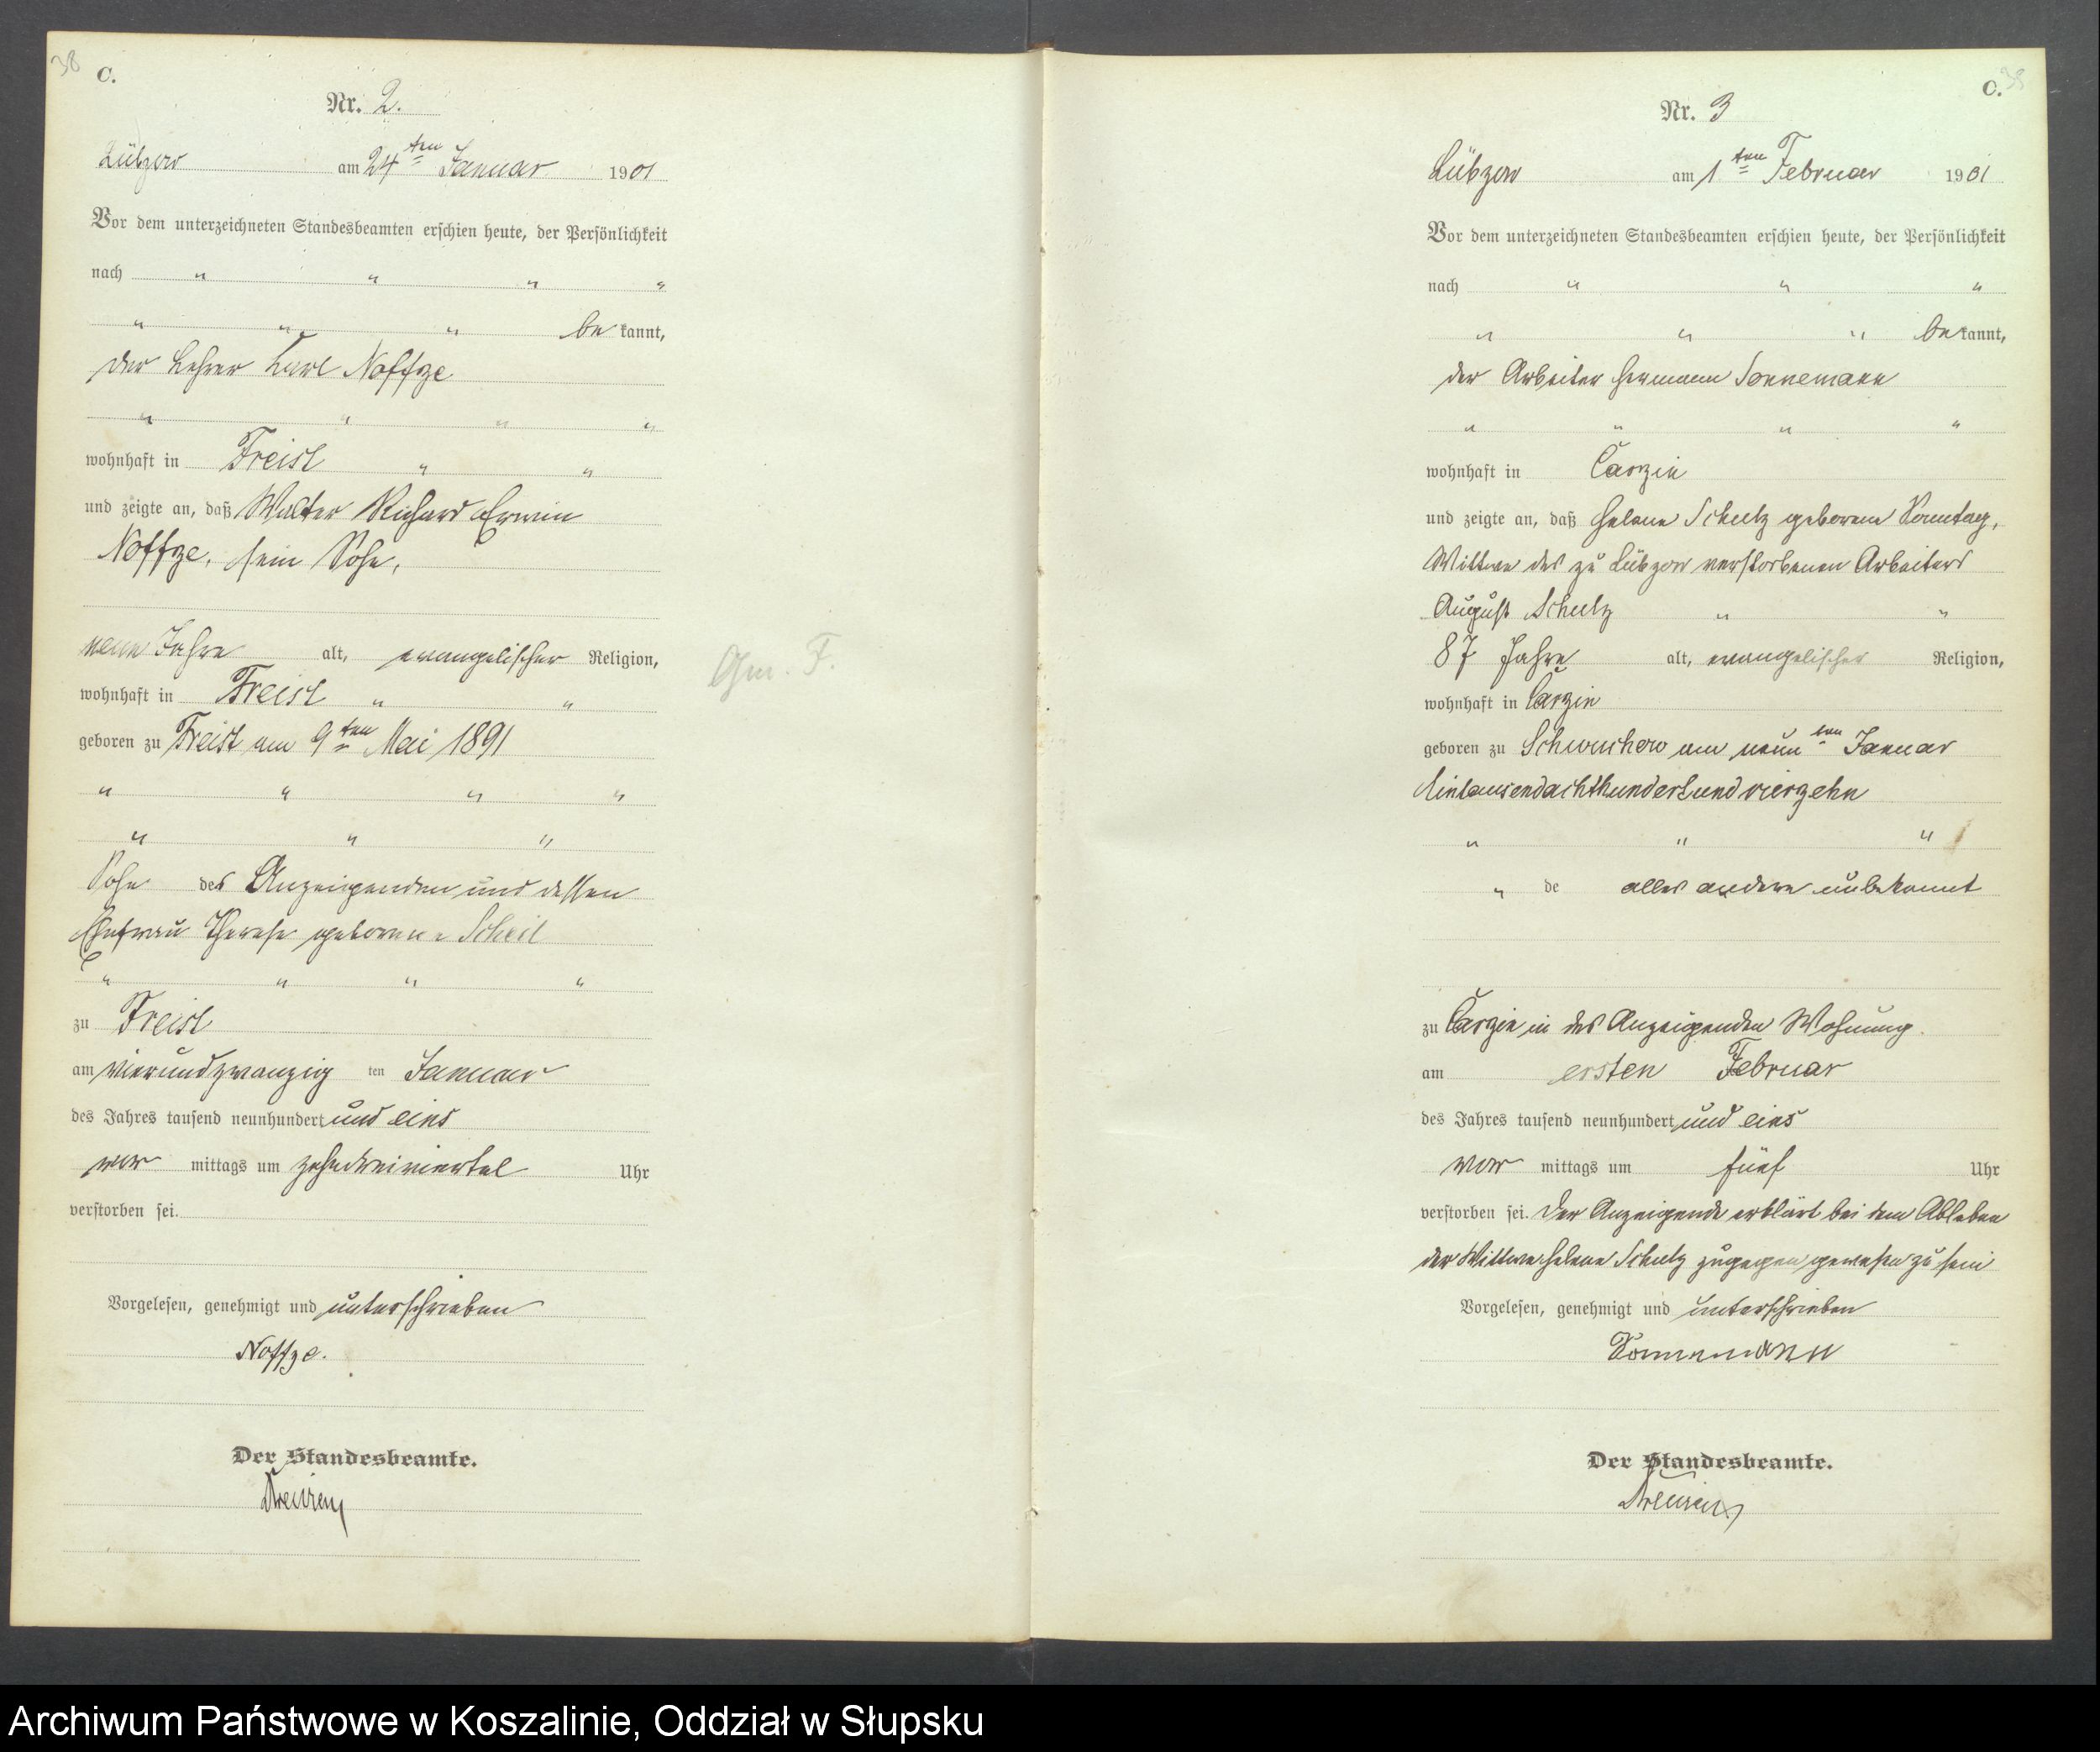 38 C.
Nr. 2.
Lübzow am 24ten Januar 1901
Vor dem unterzeichneten Standesbeamten erschien heute, der Persönlichkeit
nach " " " "
" " " be kannt,
der Lehrer Karl Noffze
" " " "
wohnhaft in Freist " "
und zeigte an, daß Walter Richard Erwin
Noffze, sein Sohn,
neun Jahre alt, evangelischer Religion,
wohnhaft in Freist " "
geboren zu Freist am 9ten Mai 1891
" " " "
" " "
Sohn des Anzeigenden und dessen
Ehefrau Therese geborene Scheil
" " " "
zu Freist
am vierundzwanzig ten Januar
des Jahres tausend neunhundert und eins
vor mittags um zehndreiviertel Uhr
verstorben sei.
Vorgelesen, genehmigt und unterschrieben
Noffze.
Der Standesbeamte.
C. 38
Nr. 3
Lübzow am 1ten Februar 1901
Vor dem unterzeichneten Standesbeamten erschien heute, der Persönlichkeit
nach " " "
" " " be kannt,
der Arbeiter Hermann Sonnemann
" " " "
wohnhaft in Carzin
und zeigte an, daß Helene Schulz geborene Sonntag,
Wittwe des zu Lübzow verstorbenen Arbeiters
August Schulz " "
87 Jahre alt, evangelischer Religion,
wohnhaft in Carzin
geboren zu Schwuchow am neunten Januar
Eintausendachthundertundvierzehn
" " "
" de alles andere unbekannt
zu Carzin in des Anzeigenden Wohnung.
am ersten Februar
des Jahres tausend neunhundert und eins
vor mittags um fünf Uhr
verstorben sei. Der Anzeigende erklärt bei dem Ableben
der Wittwe Helene Schulz zugegen gewesen zu sein
Vorgelesen, genehmigt und unterschrieben
Sonnemann
Der Standesbeamte.
Archiwum Państwowe w Koszalinie, Oddział w Słupsku